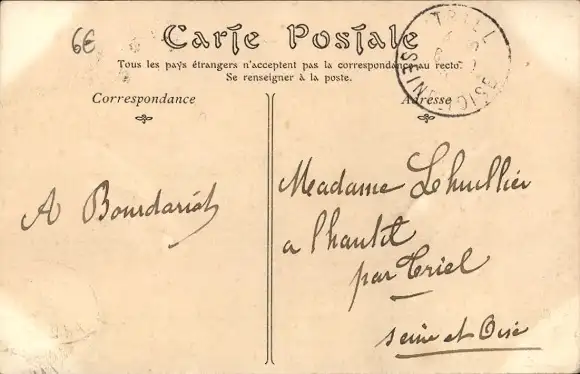 6€
Carte Postale
Tous les pays étrangers n'acceptent pas la correspondance au recto.
Se renseigner à la poste.
Correspondance
Adresse
TRIEL
A Bourdariat
Madame Lhuillier
a l'hautil
par Triel
Seine et Oise